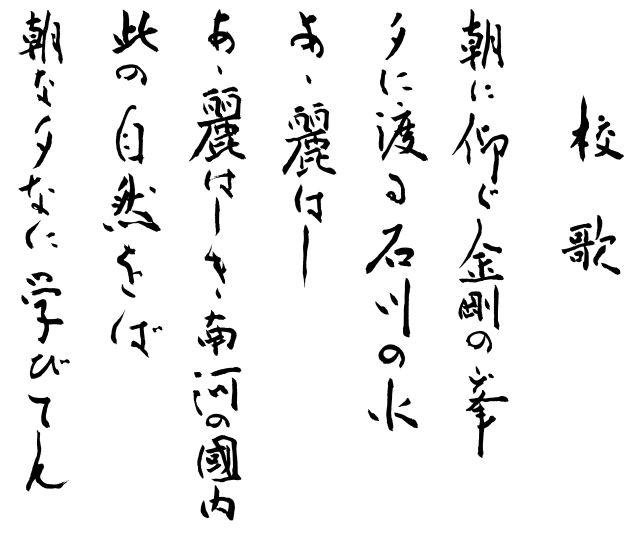 校歌
朝に仰ぐ金剛の峯
夕に渡る石川の水
あゝ麗はし
あゝ麗はしき南河の國内
此の自然をば
朝な夕なに学びてん